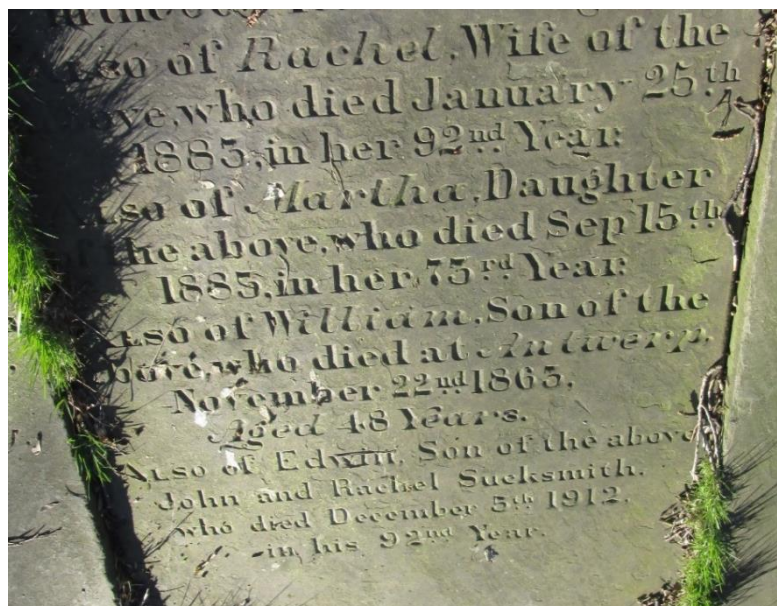 Also of Rachel, Wife of the
above, who died January 25th
1883, in her 92nd Year.
Also of Martha, Daughter
of the above, who died Sep 15th
1883, in her 73rd Year.
Also of William, Son of the
above, who died at Antwerp,
November 22nd 1863,
Aged 48 Years.
Also of Edwin, Son of the above
John and Rachel Sucksmith,
who died December 5th 1912,
in his 92nd Year.